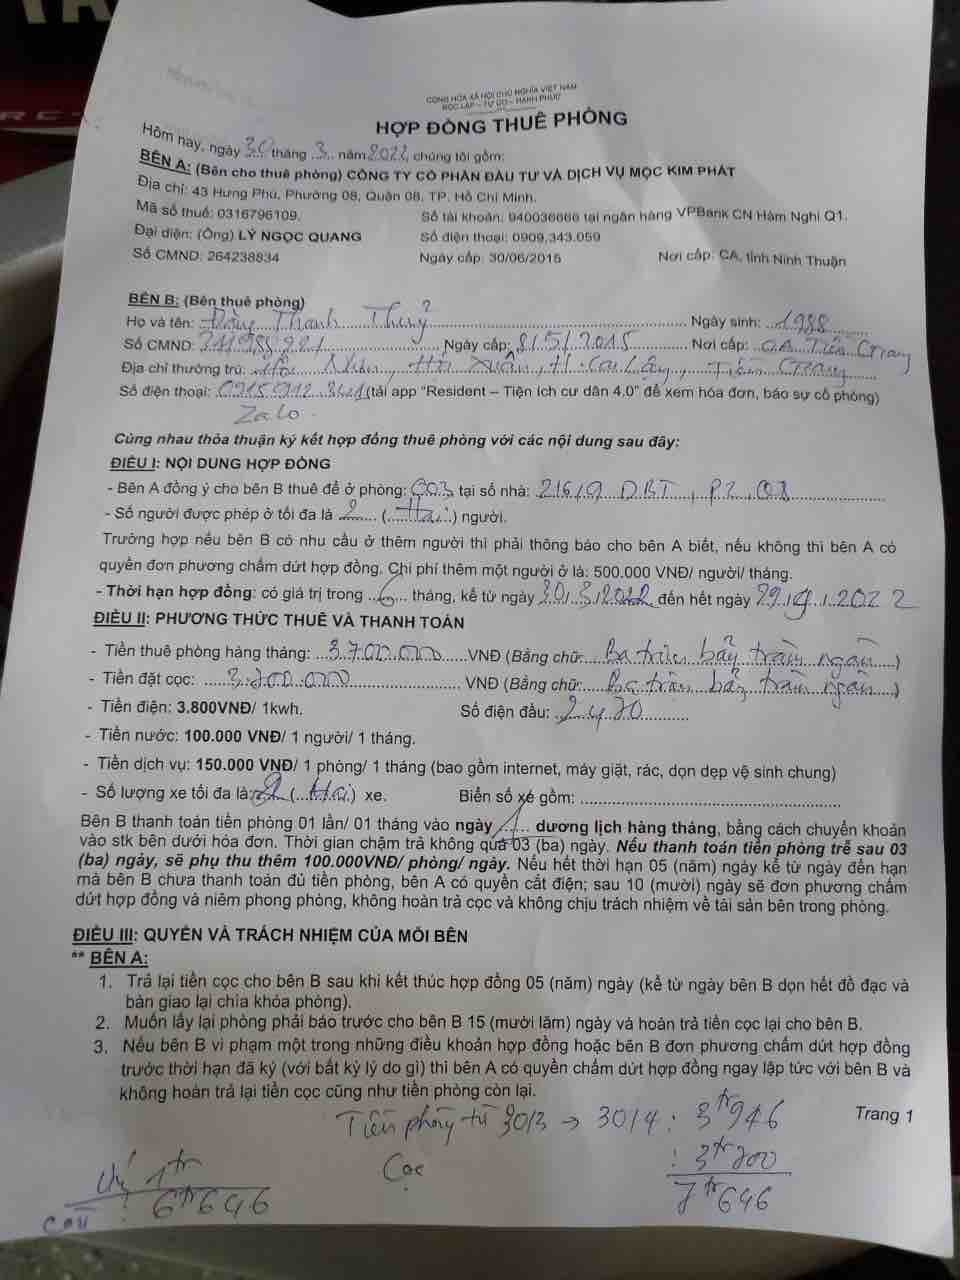 CỘNG HÒA XÃ HỘI CHỦ NGHĨA VIỆT NAM
ĐỘC LẬP – TỰ DO – HẠNH PHÚC
HỢP ĐỒNG THUÊ PHÒNG
Hôm nay, ngày 30 tháng 3 năm 2022, chúng tôi gồm:
BÊN A: (Bên cho thuê phòng) CÔNG TY CỔ PHẦN ĐẦU TƯ VÀ DỊCH VỤ MỘC KIM PHÁT
Địa chỉ: 43 Hưng Phú, Phường 08, Quận 08, TP. Hồ Chí Minh.
Mã số thuế: 0316796109. Số tài khoản: 940036666 tại ngân hàng VPBank CN Hàm Nghi Q1.
Đại diện: (Ông) LÝ NGỌC QUANG Số điện thoại: 0909.343.059
Số CMND: 264238834 Ngày cấp: 30/06/2015 Nơi cấp: CA. tỉnh Ninh Thuận
BÊN B: (Bên thuê phòng)
Họ và tên: Đặng Thanh Thuỷ Ngày sinh: 1988
Số CMND: Ngày cấp: 8/5/2015 Nơi cấp: CA Tiền Giang
Địa chỉ thường trú: Hội Xuân, H. Cai Lậy, Tiền Giang
Số điện thoại: (tải app "Resident – Tiện ích cư dân 4.0" để xem hóa đơn, báo sự cố phòng)
Zalo
Cùng nhau thỏa thuận ký kết hợp đồng thuê phòng với các nội dung sau đây:
ĐIỀU I: NỘI DUNG HỢP ĐỒNG
- Bên A đồng ý cho bên B thuê để ở phòng: 003 tại số nhà: 216/9 DBT, P2, Q8
- Số người được phép ở tối đa là 2 (Hai) người.
Trường hợp nếu bên B có nhu cầu ở thêm người thì phải thông báo cho bên A biết, nếu không thì bên A có
quyền đơn phương chấm dứt hợp đồng. Chi phí thêm một người ở là: 500.000 VNĐ/ người/ tháng.
- Thời hạn hợp đồng: có giá trị trong 6 tháng, kể từ ngày 30/3/2022 đến hết ngày 29/9/2022
ĐIỀU II: PHƯƠNG THỨC THUÊ VÀ THANH TOÁN
- Tiền thuê phòng hàng tháng: 3.700.000 VNĐ (Bằng chữ: Ba triệu bảy trăm ngàn)
- Tiền đặt cọc: 3.700.000 VNĐ (Bằng chữ: Ba triệu bảy trăm ngàn)
- Tiền điện: 3.800VNĐ/ 1kwh. Số điện đầu: 2470
- Tiền nước: 100.000 VNĐ/ 1 người/ 1 tháng.
- Tiền dịch vụ: 150.000 VNĐ/ 1 phòng/ 1 tháng (bao gồm internet, máy giặt, rác, dọn dẹp vệ sinh chung)
- Số lượng xe tối đa là: 2 (Hai) xe. Biển số xe gồm:
Bên B thanh toán tiền phòng 01 lần/ 01 tháng vào ngày 1 dương lịch hàng tháng, bằng cách chuyển khoản
vào stk bên dưới hóa đơn. Thời gian chậm trả không quá 03 (ba) ngày. Nếu thanh toán tiền phòng trễ sau 03
(ba) ngày, sẽ phụ thu thêm 100.000VNĐ/ phòng/ ngày. Nếu hết thời hạn 05 (năm) ngày kể từ ngày đến hạn
mà bên B chưa thanh toán đủ tiền phòng, bên A có quyền cắt điện; sau 10 (mười) ngày sẽ đơn phương chấm
dứt hợp đồng và niêm phong phòng, không hoàn trả cọc và không chịu trách nhiệm về tài sản bên trong phòng.
ĐIỀU III: QUYỀN VÀ TRÁCH NHIỆM CỦA MỖI BÊN
** BÊN A:
1. Trả lại tiền cọc cho bên B sau khi kết thúc hợp đồng 05 (năm) ngày (kể từ ngày bên B dọn hết đồ đạc và
bàn giao lại chìa khóa phòng).
2. Muốn lấy lại phòng phải báo trước cho bên B 15 (mười lăm) ngày và hoàn trả tiền cọc lại cho bên B.
3. Nếu bên B vi phạm một trong những điều khoản hợp đồng hoặc bên B đơn phương chấm dứt hợp đồng
trước thời hạn đã ký (với bất kỳ lý do gì) thì bên A có quyền chấm dứt hợp đồng ngay lập tức với bên B và
không hoàn trả lại tiền cọc cũng như tiền phòng còn lại.
Trang 1
Tiền phòng từ 30/3 → 30/4 : 3tr946
Cọc : 3tr700
7tr646
1tr
Còn : 6tr646